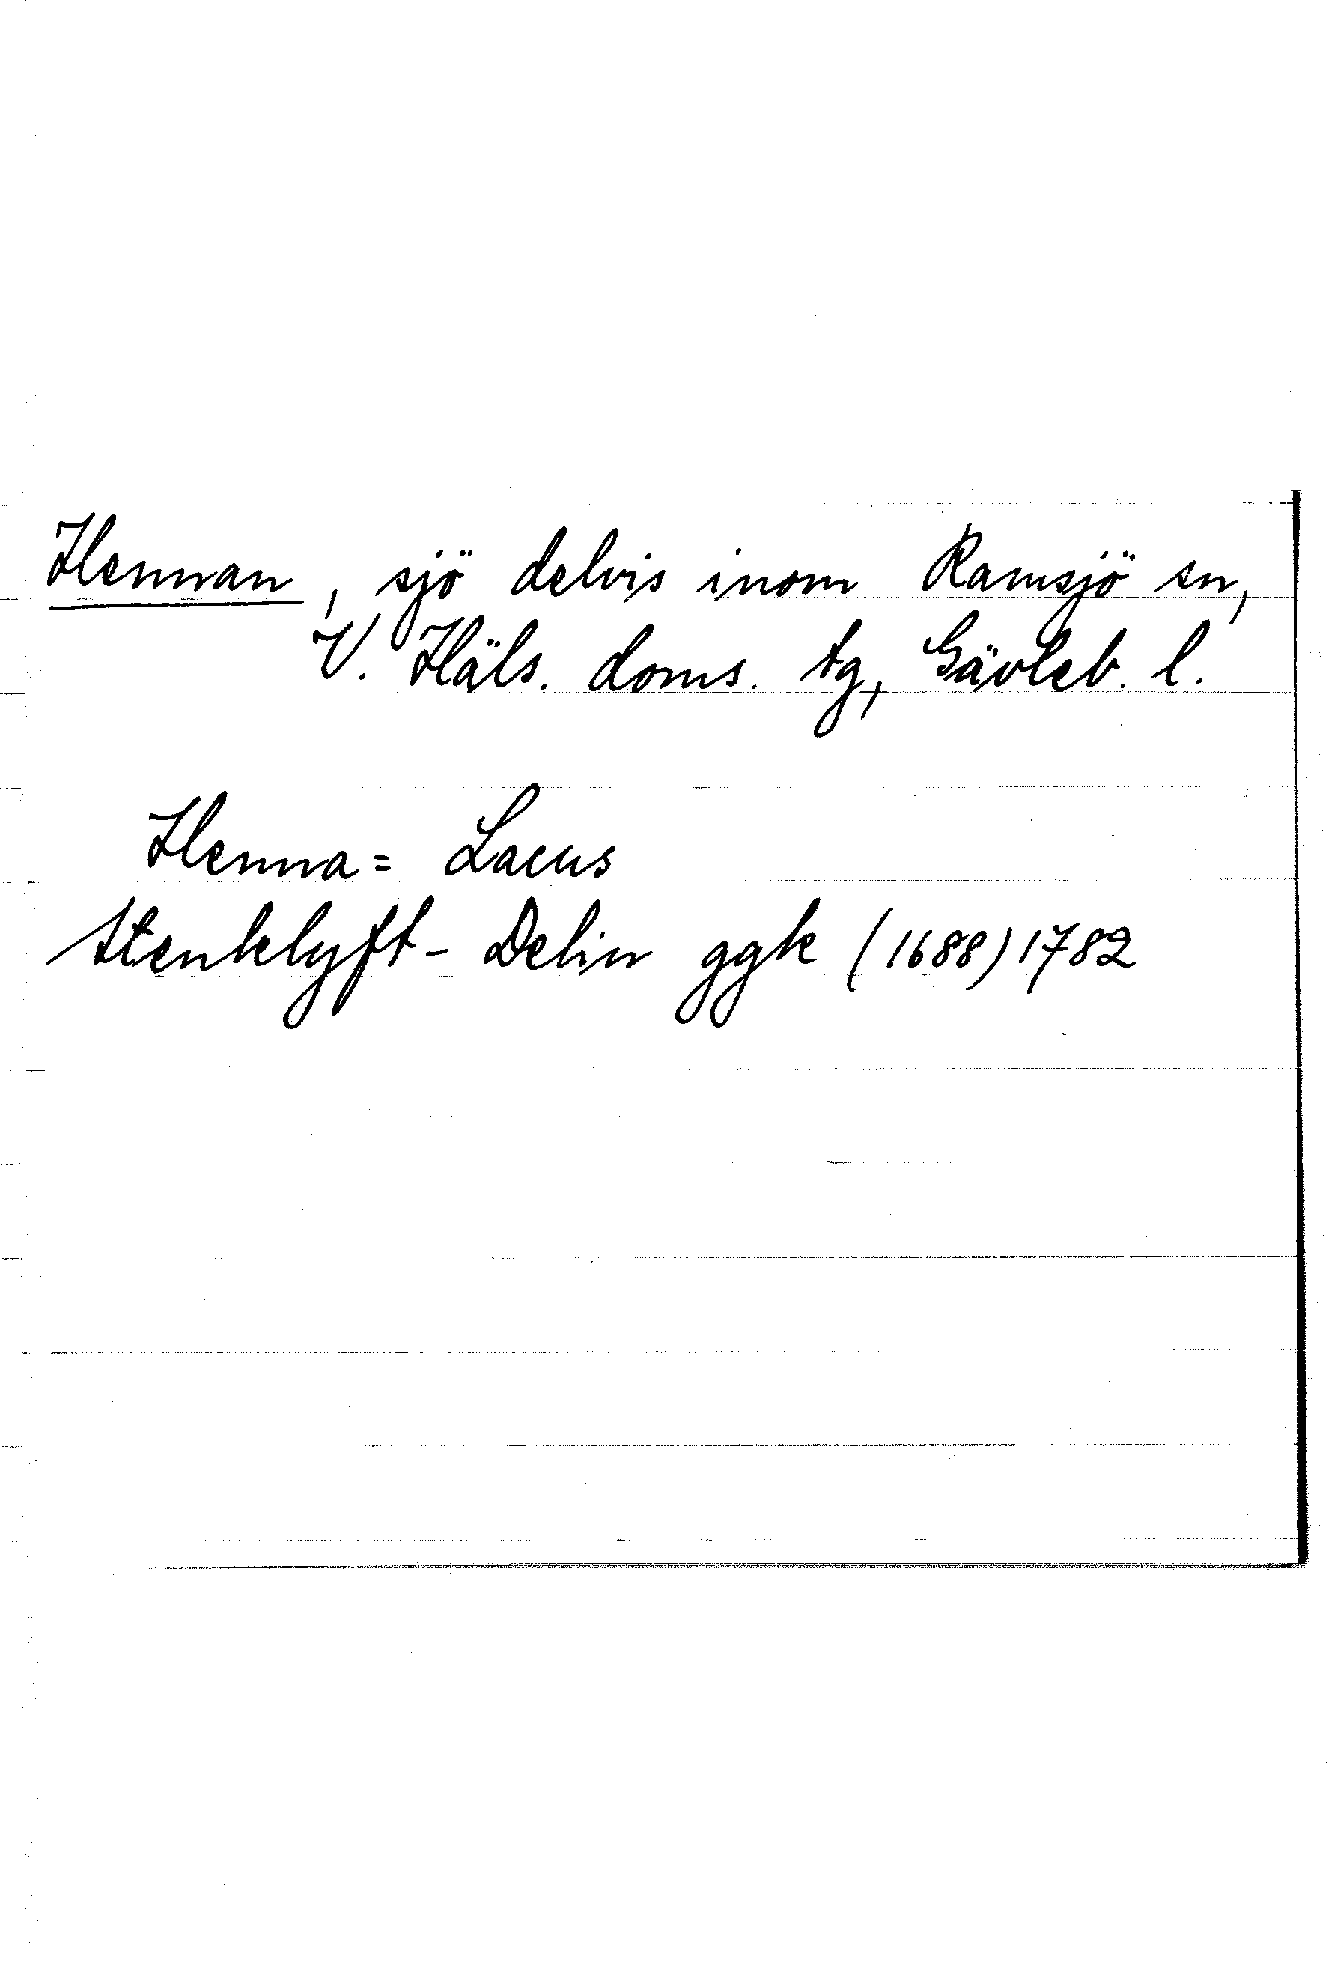 Hennan, sjö delvis inom Ramsjö sn,
V. Häls. doms. tg, Gävleb. l.
Henna = Lacus
Stenklyft - Delin ggk (1688) 1782